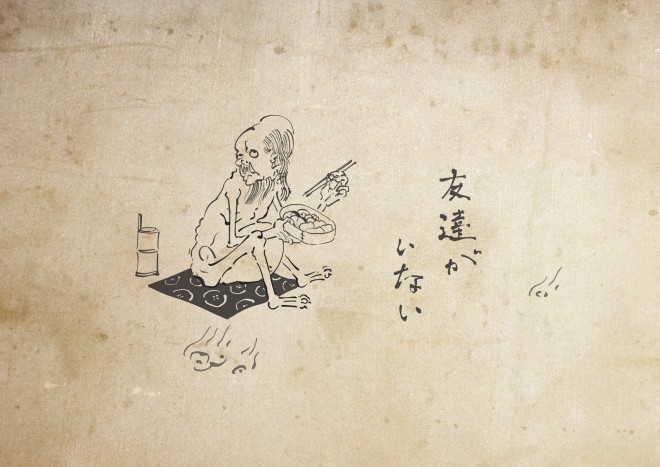 友達が
いない